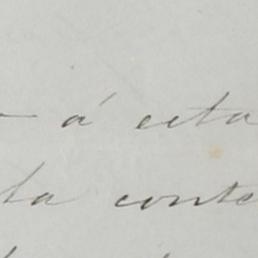 - á esta
la conte